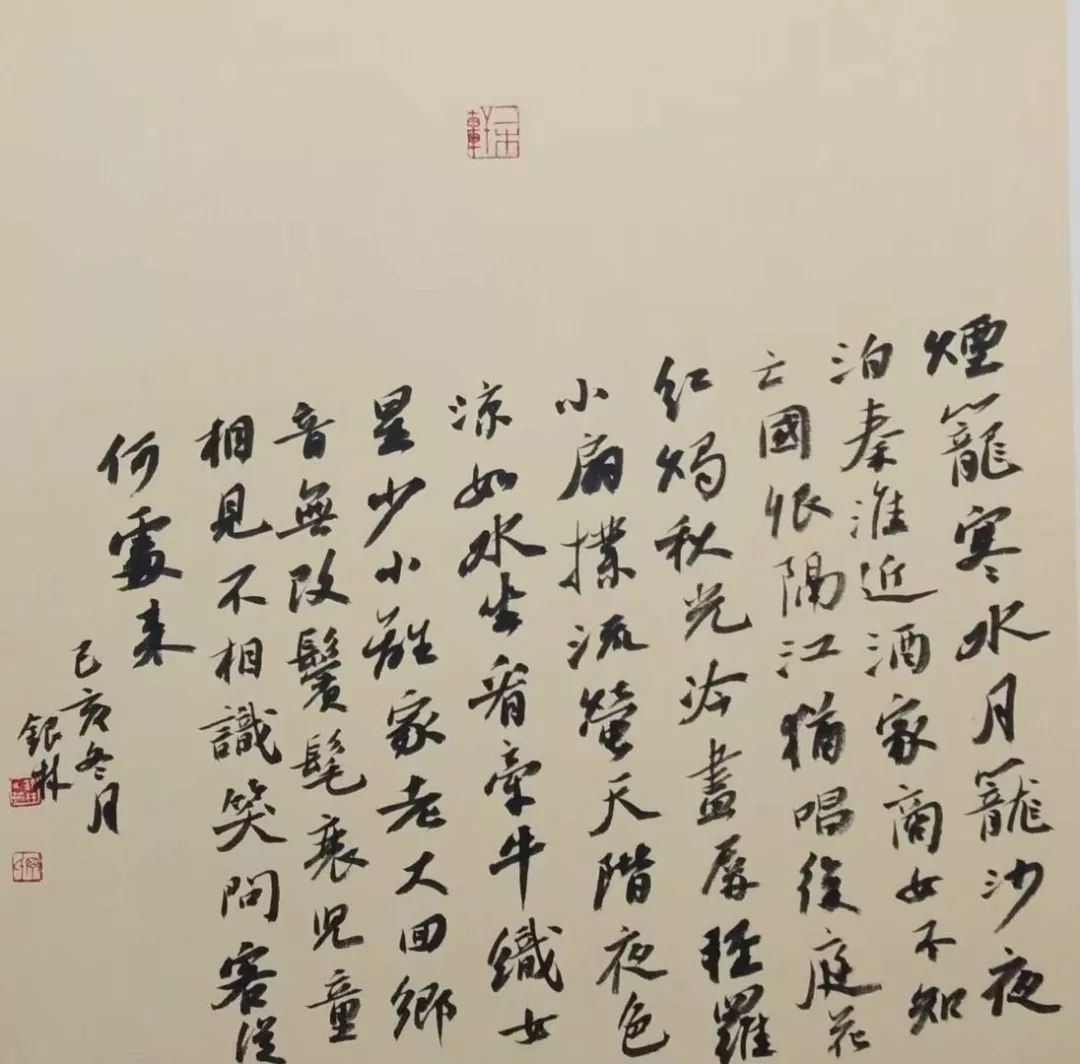 煙籠寒水月籠沙夜
泊秦淮近酒家商女不知
亡國恨隔江猶唱後庭花
紅燭秋光冷畫屏輕羅
小扇撲流螢天階夜色
涼如水坐看牽牛織女
星少小離家老大回鄉
音無改鬢髦衰兒童
相見不相識笑問客從
何處来
己亥冬月
銀林